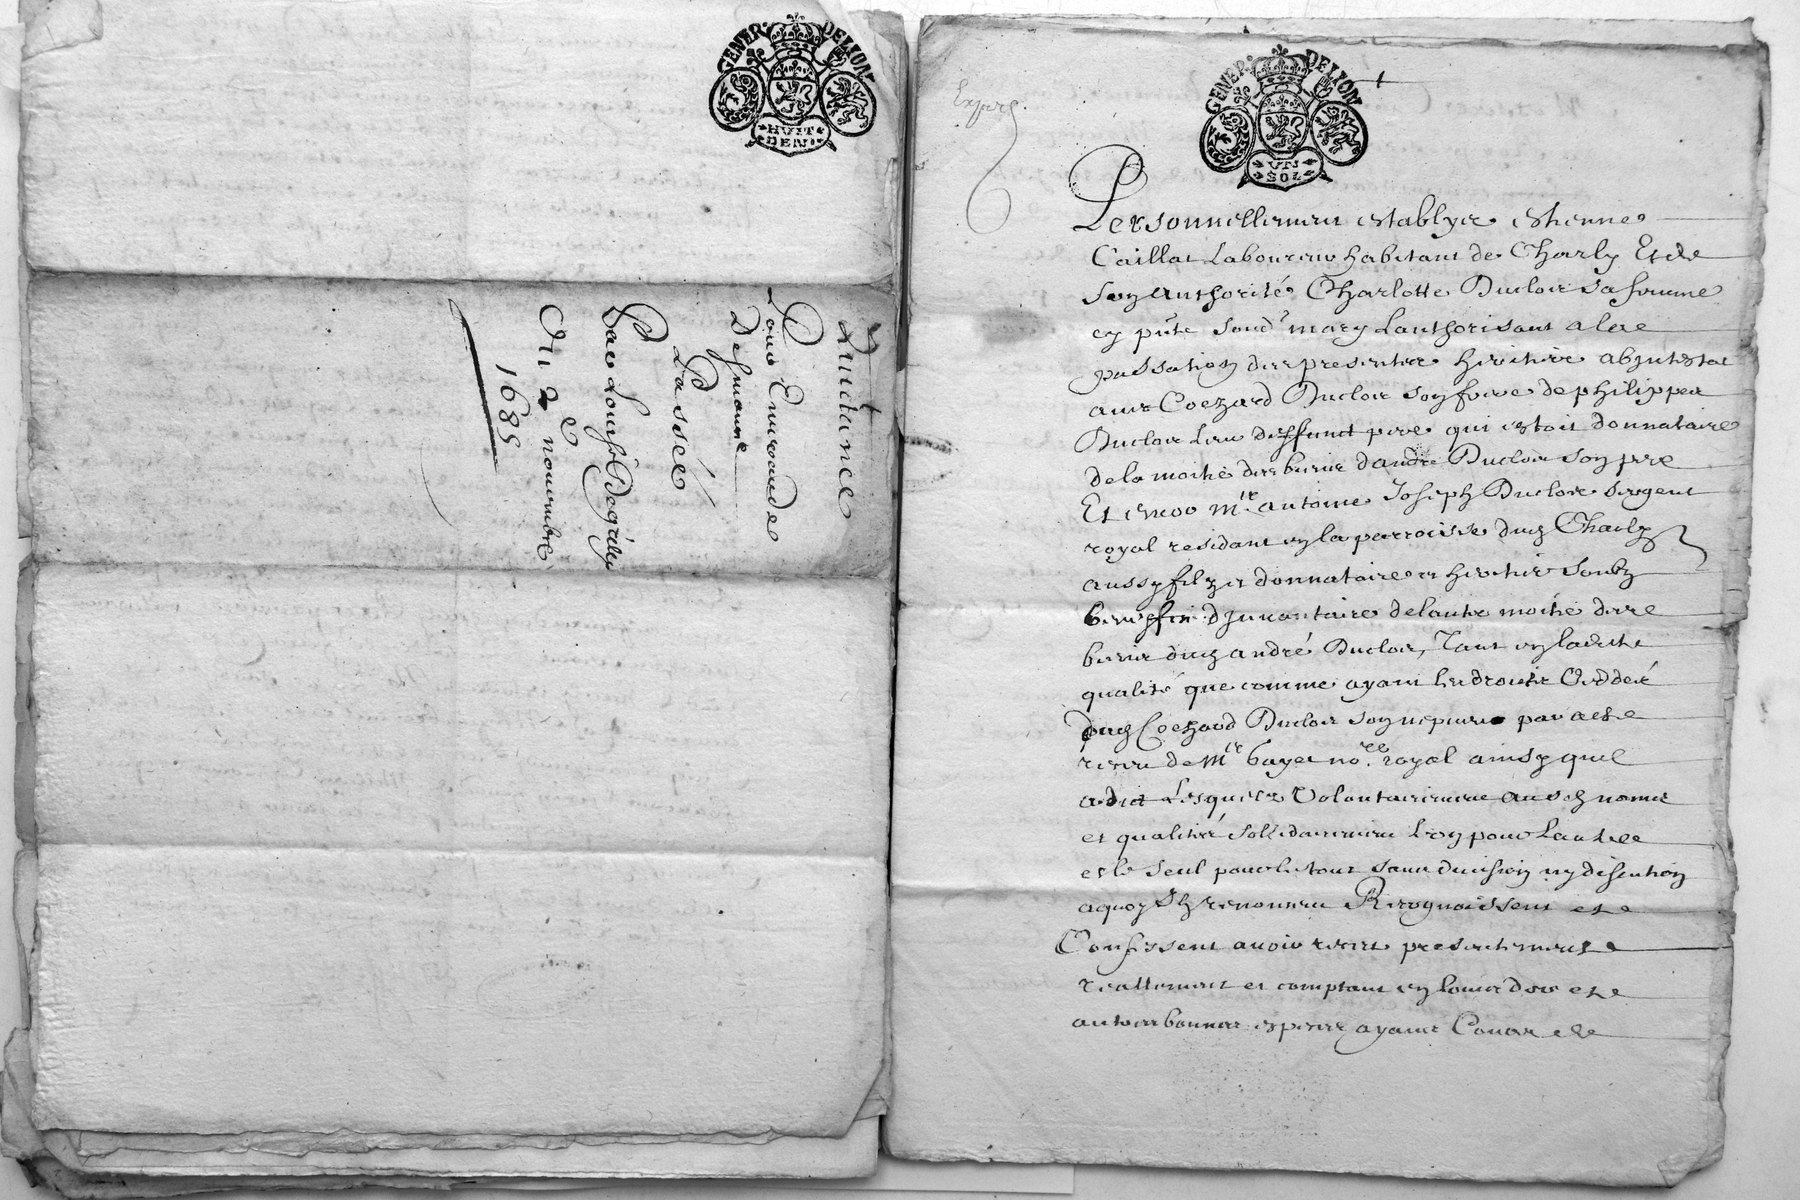 GENER. DE LION
HVIT
DEN
Quictance
Pour Enviande
Demeure
Passéé
Par Louys Degriley
Du 2e novembre
1685
GENER. DE LION
VN
SOL
Expres
Personnellement establyes estienne
Caillat Laboureur habitant de Charly Et de
son authorité Charlotte Ducloir sa femme
en pnte soud mary Lauthorisant a la
passation des presentes heritiere abjntestat
aux Coezard Ducloir son frere de philippes
Ducloir leur deffunct pere qui estoit donnataire
de la moitié des biens dandre Ducloir son pere
Et encoo Mre antoine Joseph Ducloir sergent
royal residant en la parroisse dud Charly
aussy filz et donnataire et heritier soubz
benefice djnvantaire de lautre moitié des
biens dud andré Ducloir, Tant en ladite
qualité que comme ayant les droits Ceddés
dud Coezard Ducloir son nepueu par acte
receu de Me bayet nore royal ainsy quil
a dict Lesquels Volontairement ausd noms
et qualités sollidairement lun pour Lautre
et le seul pour le tout sans division ny discution
a quoy Ilz renoncent Recognoissent et
Confessent avoir receu presentement
reallement et comptant en louis dor et
autres bonnes especes ayant Cours de